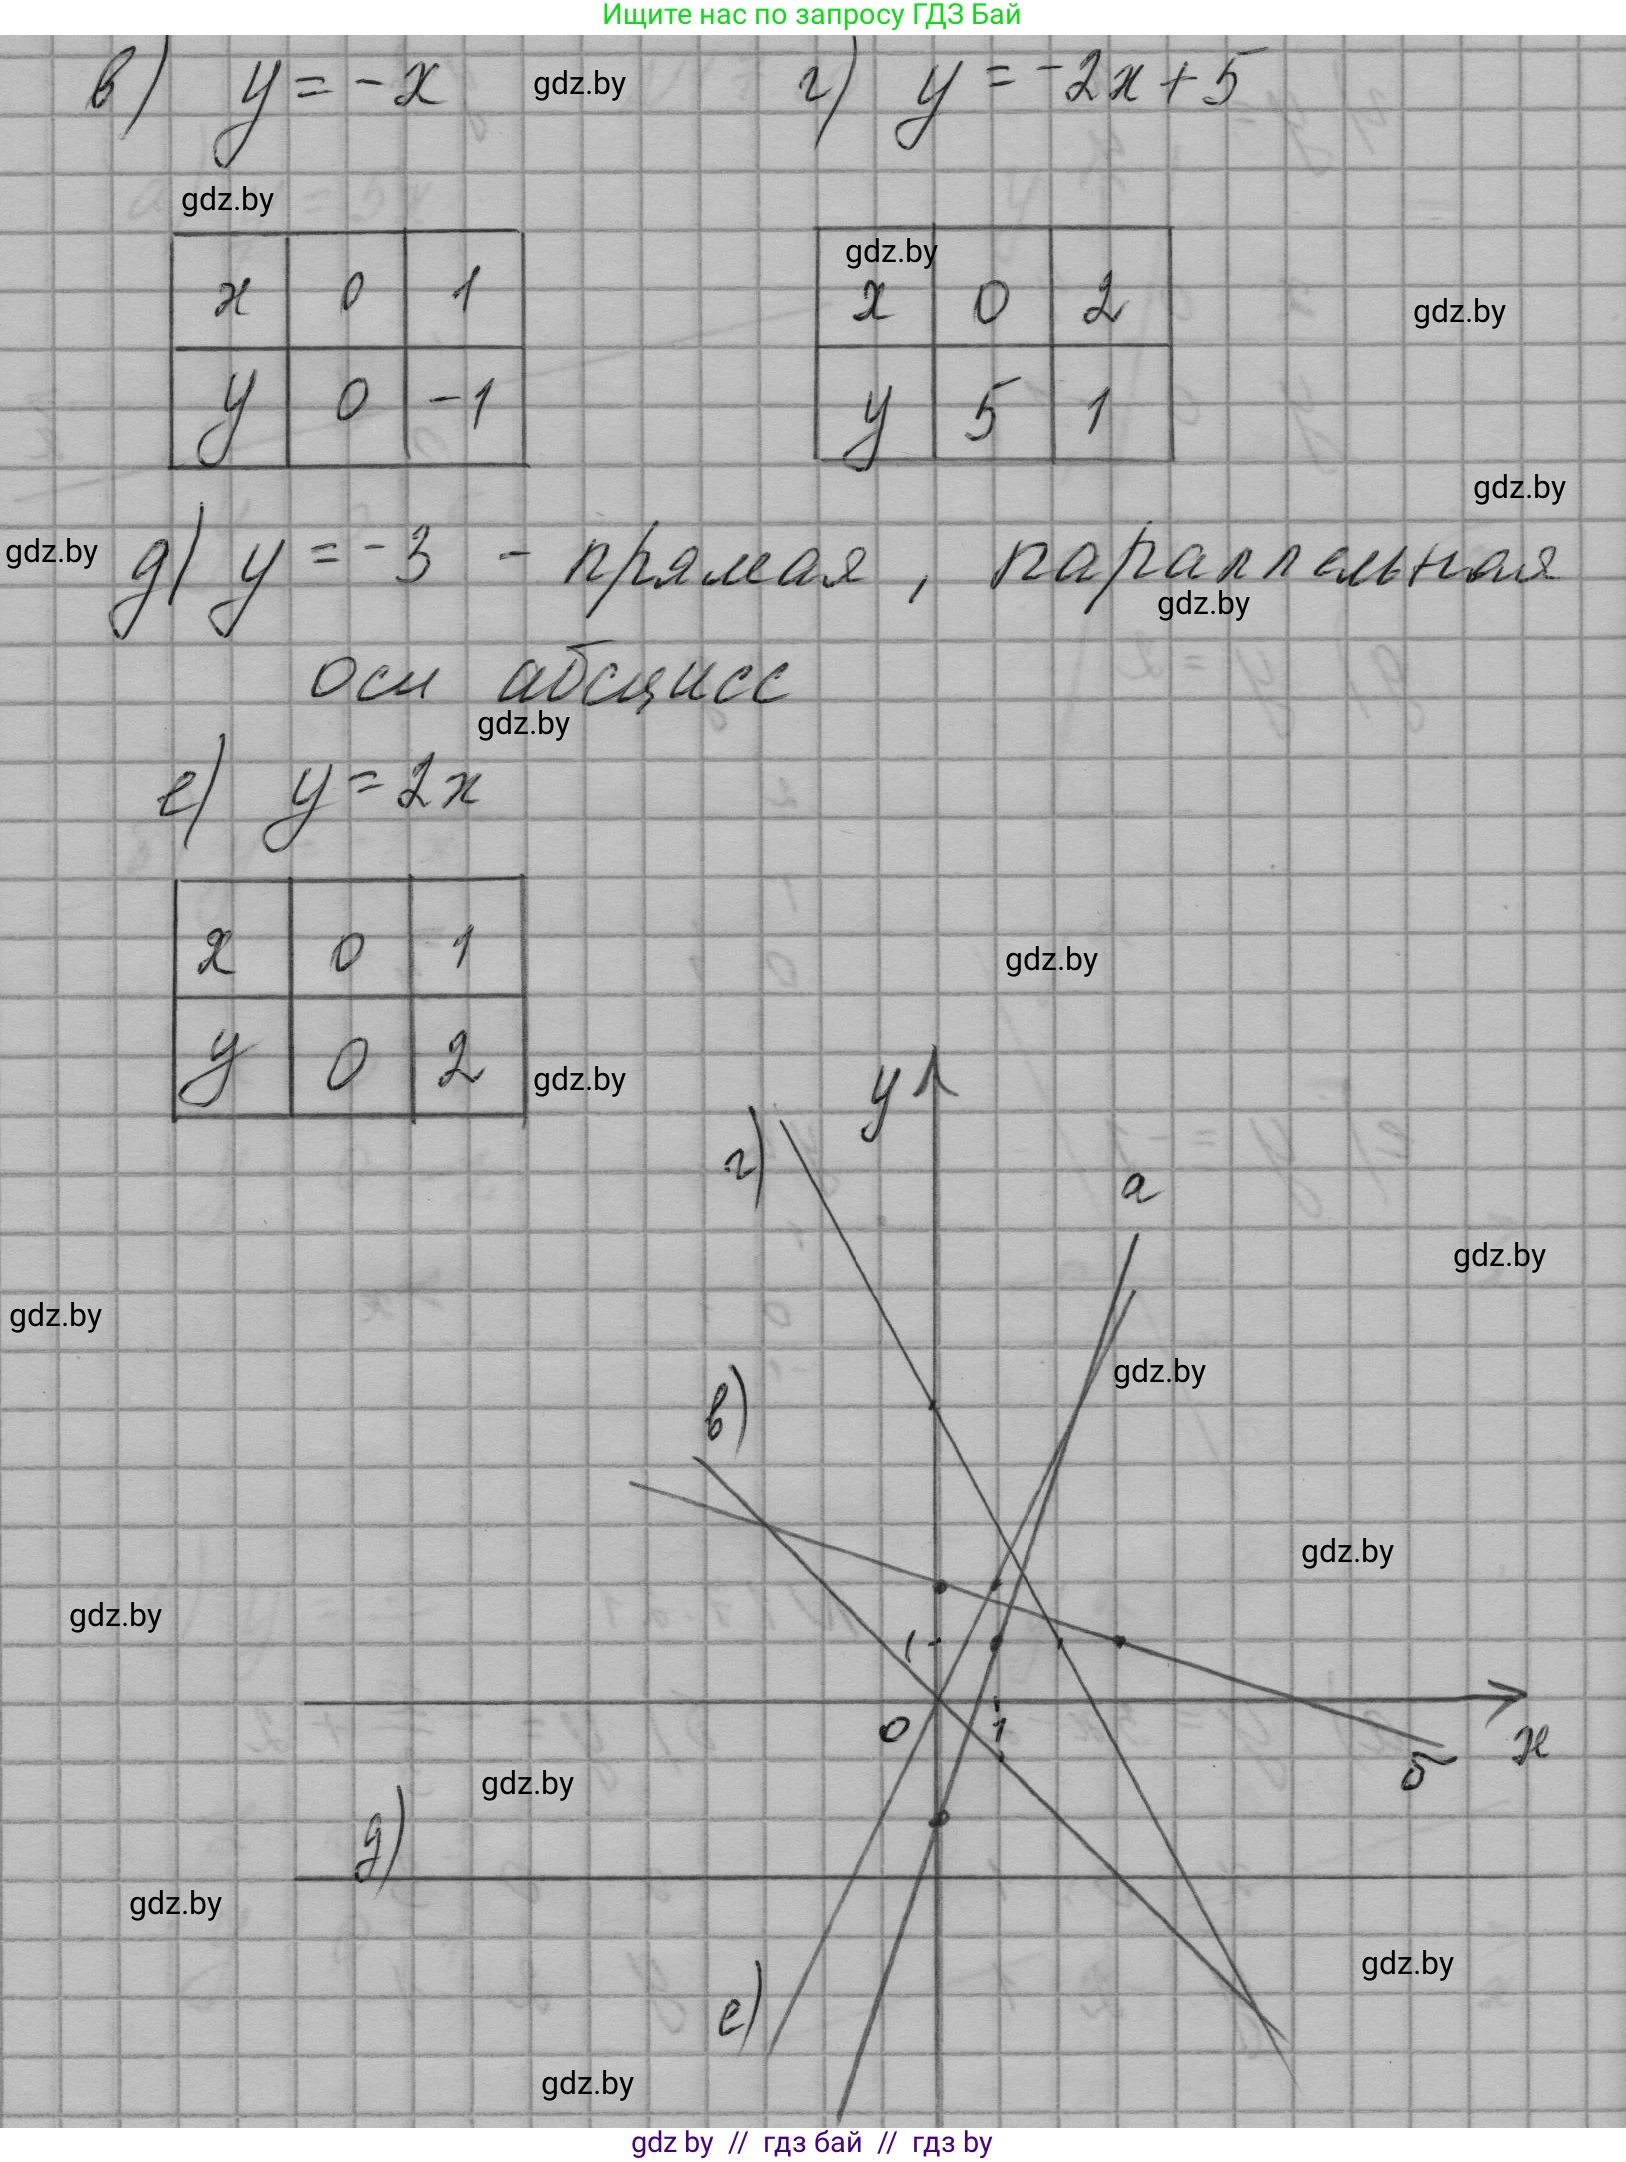 Ищите нас по запросу ГДЗ Бай
в) y = -x gdz.by г) y = -2x + 5
gdz.by
gdz.by
x 0 1 x 0 2
gdz.by
y 0 -1 y 5 1
gdz.by
gdz.by д) y = -3 - прямая, параллельная
gdz.by
оси абсцисс
gdz.by
е) y = 2x
x 0 1
gdz.by
y 0 2
gdz.by
y
г)
а
gdz.by
gdz.by
gdz.by
в)
gdz.by
gdz.by
1
0 1 x
б
gdz.by
д)
gdz.by
gdz.by
е)
gdz.by
gdz by // гдз бай // гдз by